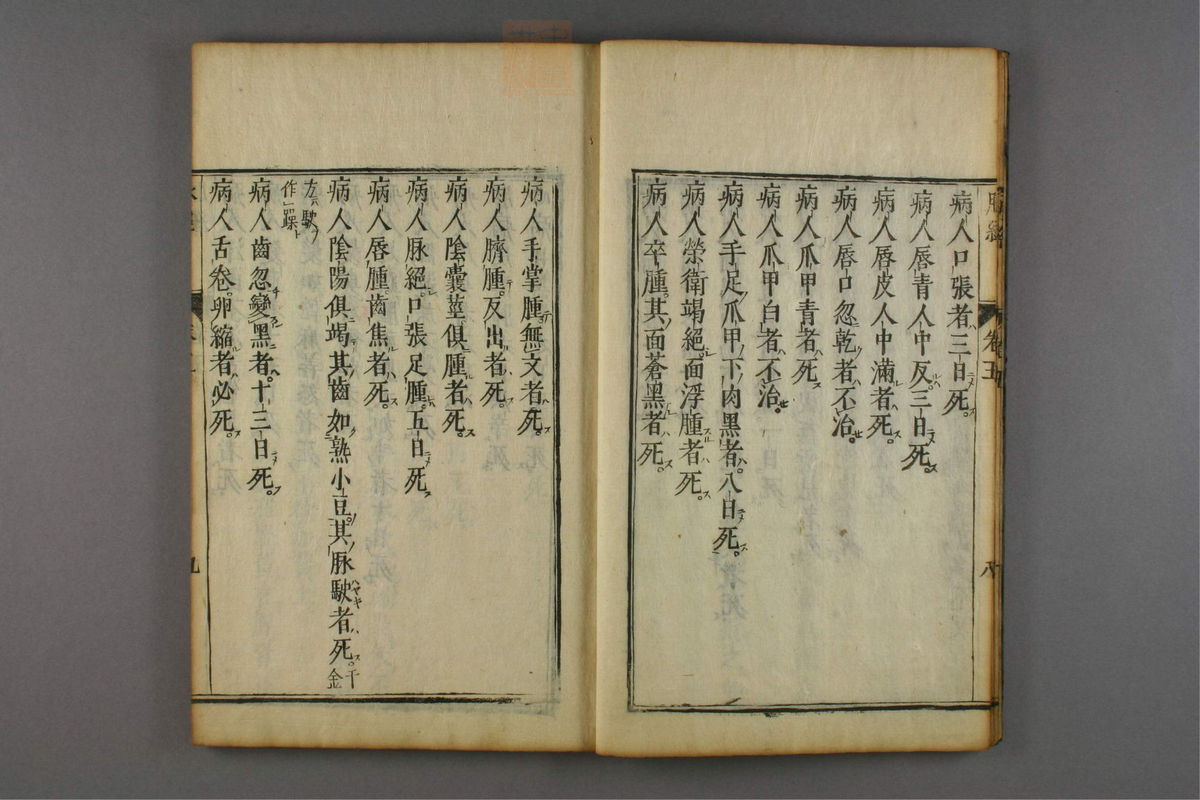 脈經 卷五 八
病人口張者三日死。
病人唇青人中反。三日死。
病人唇皮人中滿者死。
病人唇口忽乾者不治。
病人爪甲青者死
病人爪甲白者不治。
病人手足爪甲下肉黑者。八日死。
病人榮衛竭絕。面浮腫者死。
病人卒腫。其面蒼黑者死。
病人手掌腫無文者死。
病人臍腫。反出者死。
病人陰囊莖俱腫者死。
病人脉絕。口張足腫。五日死
病人唇腫。齒焦者死。
病人陰陽俱竭。其齒如熟小豆。其脉駛者死。千金
方駛作躁
病人齒忽變黑者。十三日死。
病人舌卷。卵縮者必死。
九